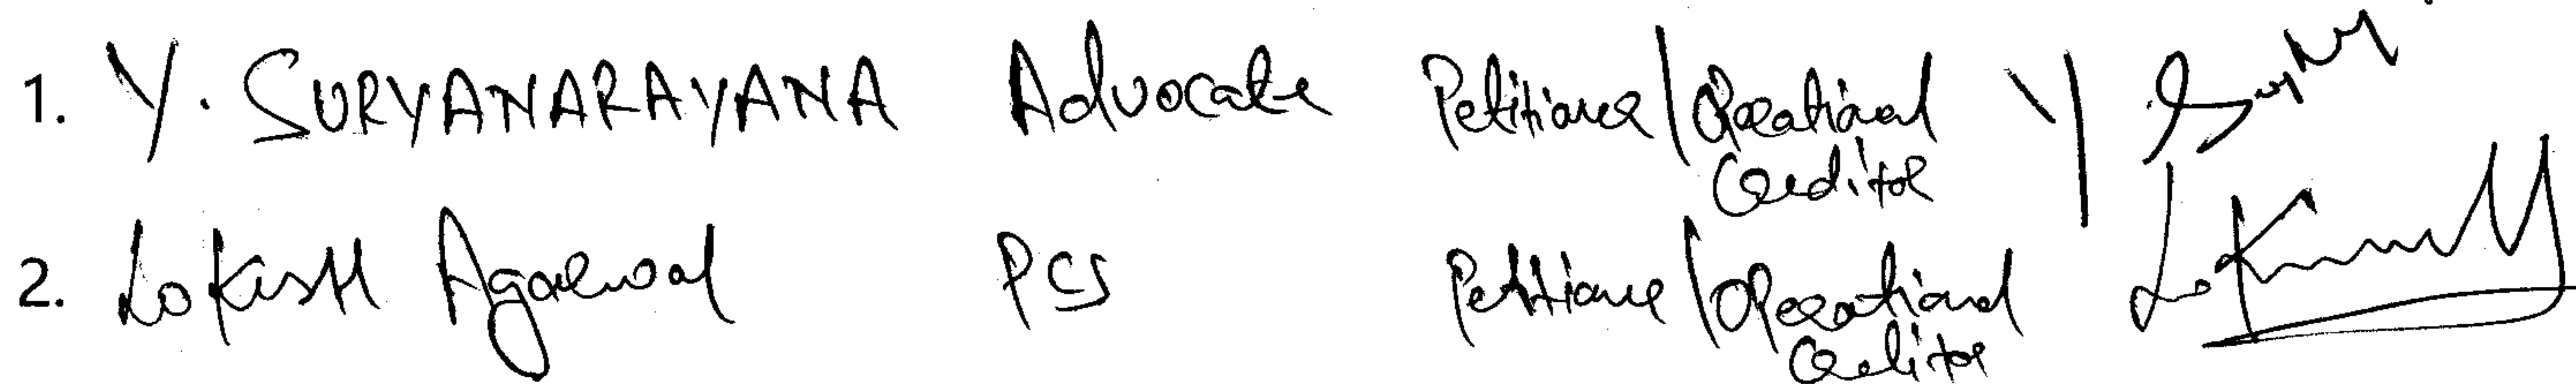 1. Y. SURYANARAYANA Advocate Petitioner/Operational
Creditor
2. Lokesh Agarwal PCS Petitioner/Operational
Creditor